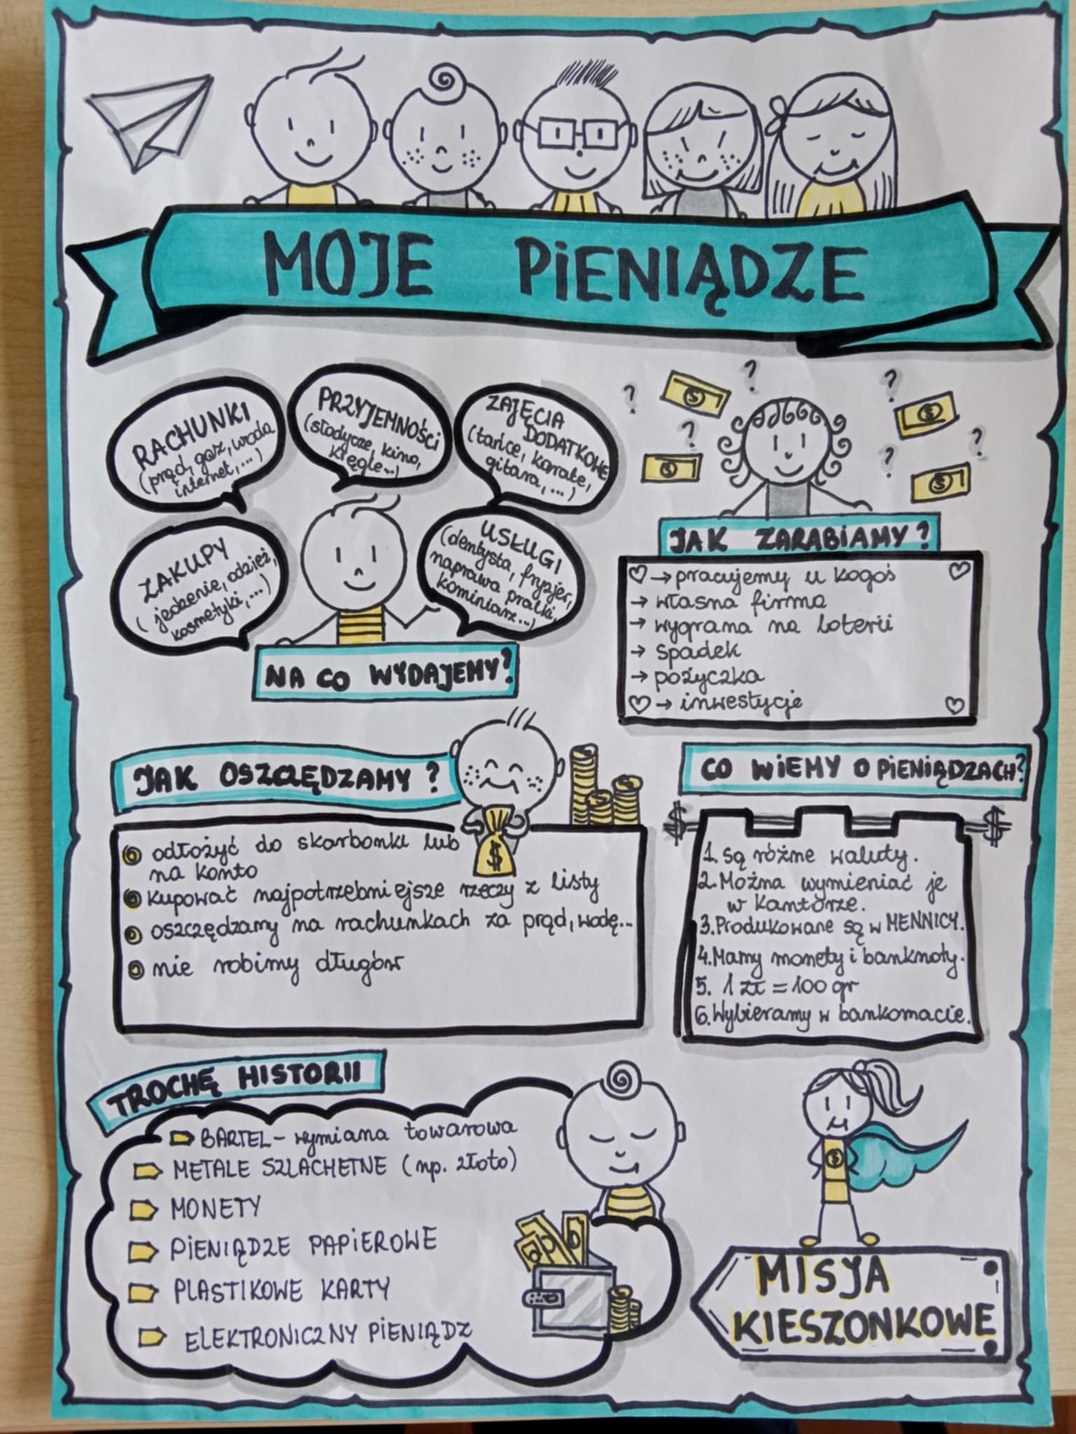 MOJE PIENIĄDZE
RACHUNKI
(prąd, gaz, woda
internet,...)
PRZYJEMNOŚCI
(słodycze, kino,
kręgle...)
ZAJĘCIA
DODATKOWE
(tańce, karate,
gitara,...)
ZAKUPY
(jedzenie, odzież,
kosmetyki,...)
USŁUGI
(dentysta, fryzjer,
naprawa pralki,
kominiarz...)
NA CO WYDAJEMY?
? ? ? ? ? ?
$ $ $ $
JAK ZARABIAMY?
→ pracujemy u kogoś
→ własna firma
→ wygrana na loterii
→ spadek
→ pożyczka
→ inwestycje
JAK OSZCZĘDZAMY?
$
odłożyć do skarbonki lub
na konto
kupować najpotrzebniejsze rzeczy z listy
oszczędzamy na rachunkach za prąd, wodę...
nie robimy długów
CO WIEMY O PIENIĄDZACH?
$ $
1. Są różne waluty.
2. Można wymieniać je
w kantorze.
3. Produkowane są w MENNICY.
4. Mamy monety i banknoty.
5. 1 zł = 100 gr
6. Wybieramy w bankomacie.
TROCHĘ HISTORII
BARTEL - wymiana towarowa
METALE SZLACHETNE (np. złoto)
MONETY
PIENIĄDZE PAPIEROWE
PLASTIKOWE KARTY
ELEKTRONICZNY PIENIĄDZ
$
MISJA
KIESZONKOWE